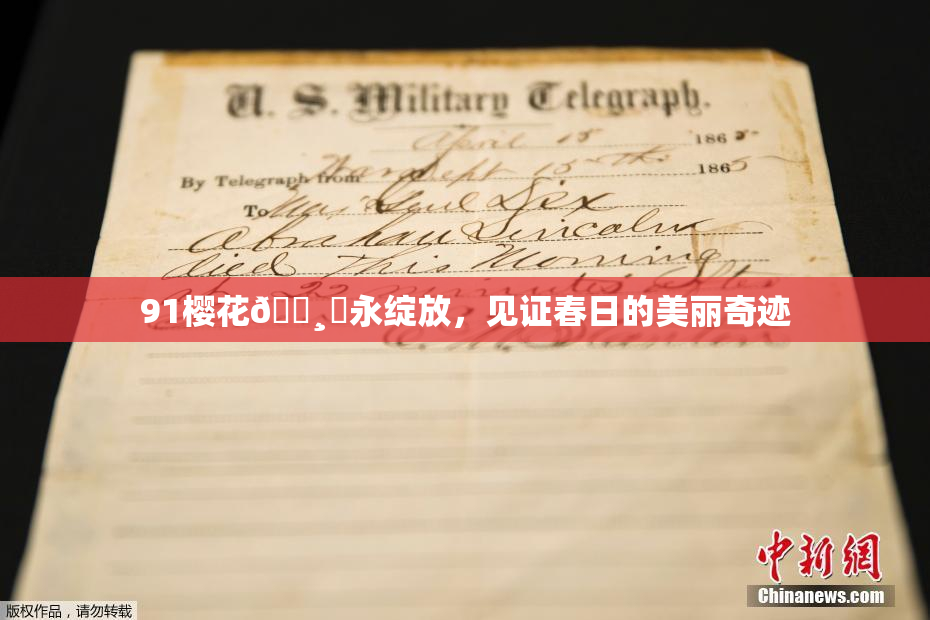 U. S. Military Telegraph.
April 15 1865
By Telegraph from War Dept 15th 1865
To Maj Genl Dix
Abraham Lincoln
died This Morning
at 22 minutes after
91樱花ð永绽放，见证春日的美丽奇迹
E. M. Stanton
中新网
Chinanews.com
版权作品，请勿转载